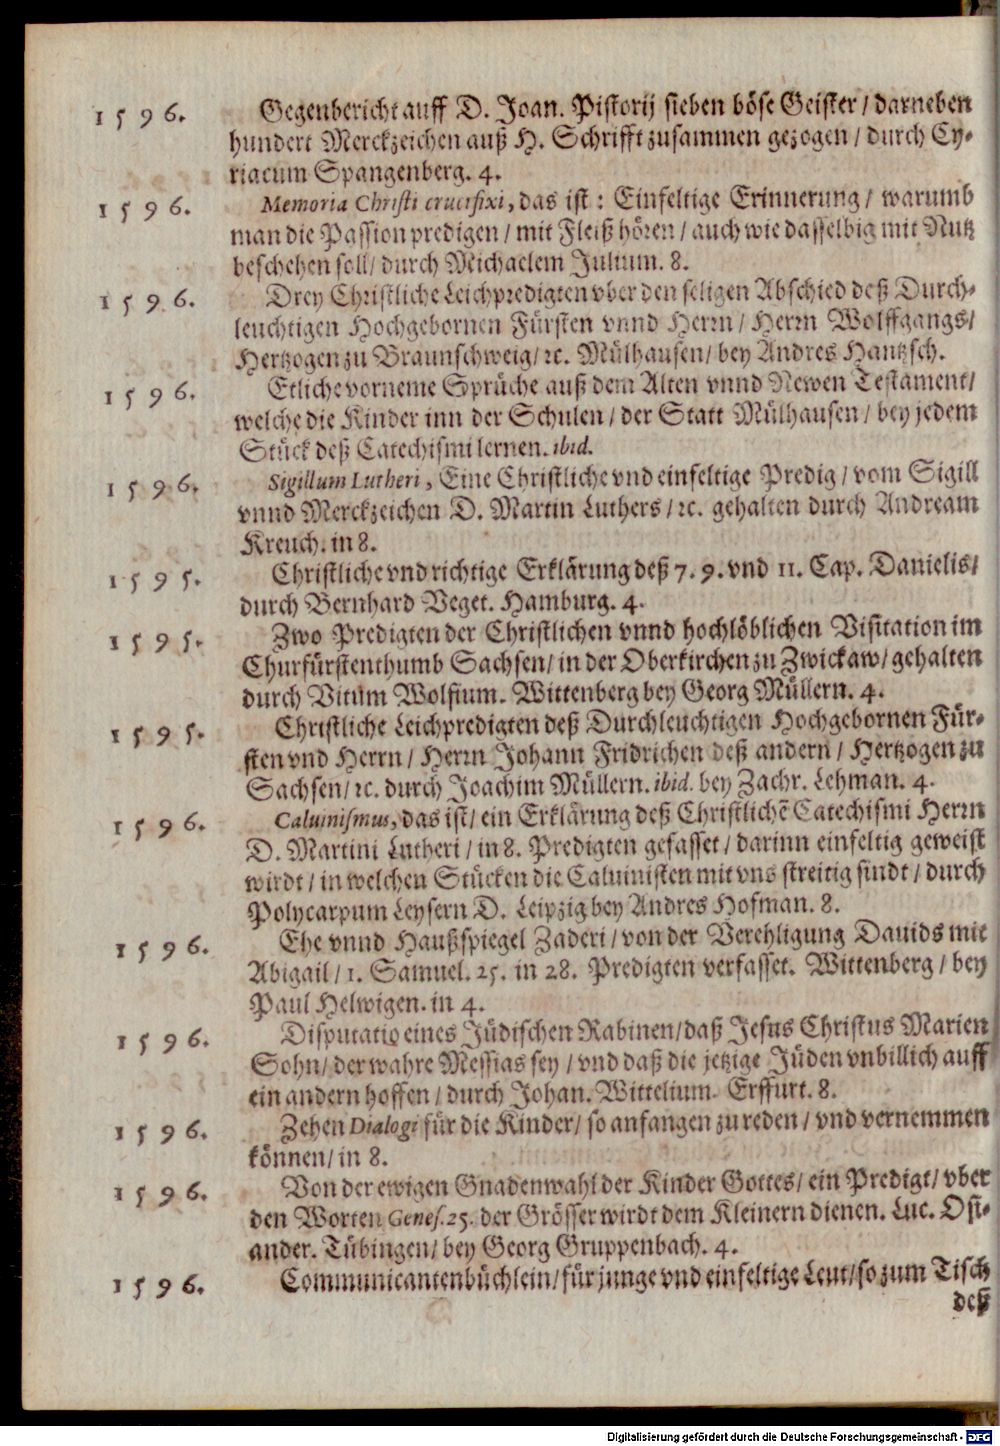 1596. Gegenbericht auff D. Joan. Pistorij sieben böse Geister / darneben
hundert Merckzeichen auß H. Schrifft zusammen gezogen / durch Cy-
riacum Spangenberg. 4.
1596. Memoria Christi crucifixi, das ist: Einfeltige Erinnerung / warumb
man die Passion predigen / mit Fleiß hören / auch wie dasselbig mit Nutz
beschehen soll / durch Michaelem Julium. 8.
1596. Drey Christliche Leichpredigten vber den seligen Abschied deß Durch-
leuchtigen Hochgebornen Fürsten vnnd Herrn / Herrn Wolffgangs /
Hertzogen zu Braunschweig / ꝛc. Mülhausen / bey Andres Hantzsch.
1596. Etliche vorneme Sprüche auß dem Alten vnnd Newen Testament /
welche die Kinder inn der Schulen / der Statt Mülhausen / bey jedem
Stück deß Catechismi lernen. ibid.
1596. Sigillum Lutheri, Eine Christliche vnd einfeltige Predig / vom Sigill
vnnd Merckzeichen D. Martin Luthers / ꝛc. gehalten durch Andream
Kreuch. in 8.
1595. Christliche vnd richtige Erklärung deß 7. 9. vnd 11. Cap. Danielis /
durch Bernhard Veget. Hamburg. 4.
1595. Zwo Predigten der Christlichen vnnd hochlöblichen Visitation im
Churfürstenthumb Sachsen / in der Oberkirchen zu Zwickaw / gehalten
durch Vitum Wolfium. Wittenberg bey Georg Müllern. 4.
1595. Christliche Leichpredigten deß Durchleuchtigen Hochgebornen Für-
sten vnd Herrn / Herrn Johann Fridrichen deß andern / Hertzogen zu
Sachsen / ꝛc. durch Joachim Müllern. ibid. bey Zachr. Lehman. 4.
1596. Caluinismus, das ist / ein Erklärung deß Christlichē Catechismi Herrn
D. Martini Lutheri / in 8. Predigten gefasset / darinn einfeltig geweist
wirdt / in welchen Stücken die Caluinisten mit vns streitig sindt / durch
Polycarpum Leysern D. Leipzig bey Andres Hofman. 8.
1596. Ehe vnnd Haußspiegel Zaderi / von der Verehligung Dauids mit
Abigail / 1. Samuel. 25. in 28. Predigten verfasset. Wittenberg / bey
Paul Helwigen. in 4.
1596. Disputatio eines Jüdischen Rabinen / daß Jesus Christus Marien
Sohn / der wahre Messias sey / vnd daß die jetzige Jüden vnbillich auff
ein andern hoffen / durch Johan. Wittelium. Erffurt. 8.
1596. Zehen Dialogi für die Kinder / so anfangen zu reden / vnd vernemmen
können / in 8.
1596. Von der ewigen Gnadenwahl der Kinder Gottes / ein Predigt / vber
den Worten Genes. 25. der Grösser wirdt dem Kleinern dienen. Luc. Osi-
ander. Tübingen / bey Georg Gruppenbach. 4.
1596. Communicantenbüchlein / für junge vnd einfeltige Leut / so zum Tisch
deß
Digitalisierung gefördert durch die Deutsche Forschungsgemeinschaft - DFG